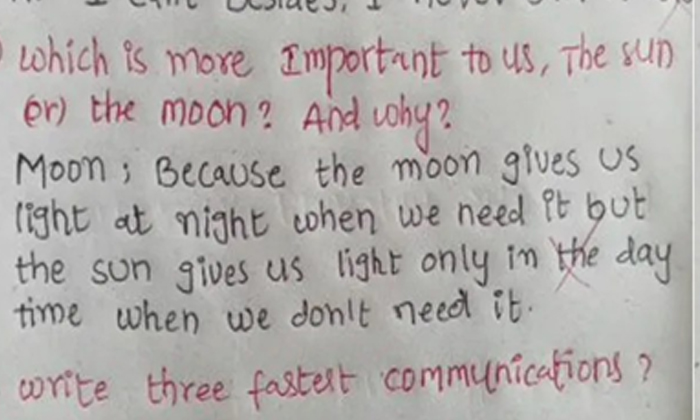 I can't Besides, I never
which is more Important to us, The sun
(or) the moon? And why?
Moon; Because the moon gives us
light at night when we need it but
the sun gives us light only in the day
time when we don't need it.
write three fastest communications?